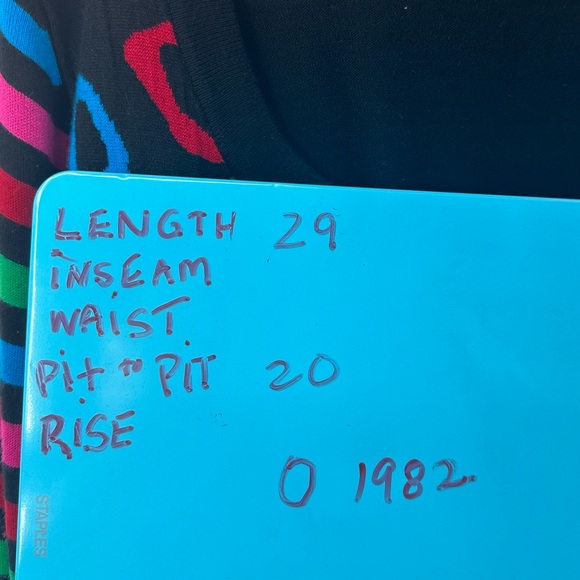 LENGTH 29
INSEAM
WAIST
Pit to PIT 20
RISE
O 1982
STAPLES